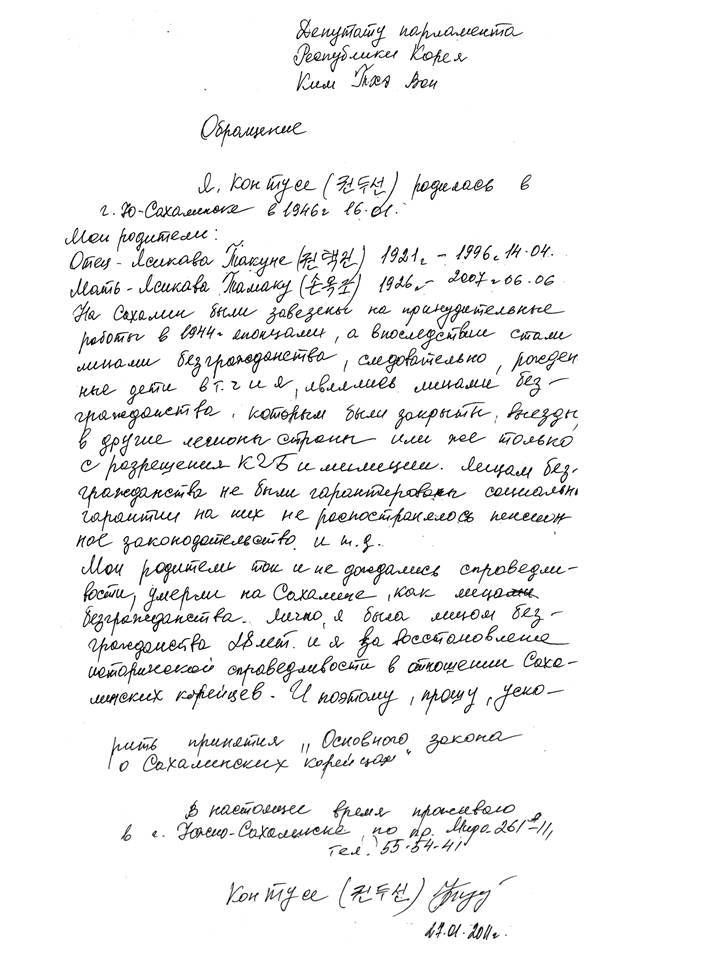 Депутату парламента
Республики Корея
Ким Тхэ Вон
Обращение
Я, Кон Ту Се (권두선) родилась в
г. Ю-Сахалинске в 1946г 16.01.
Мои родители:
Отец - Ясикава Такуне (권택권) 1921г - 1996г.14.04.
Мать - Ясикава Тамаку (손옥조) 1926г - 2007г 06.06
На Сахалин были завезены на принудительные
работы в 1944г японцами, а впоследствии стали
лицами безгражданства, следовательно, рожден
ные дети в т.ч и я, являлись лицами без-
гражданства, которым были закрыты, выезды
в другие регионы страны или же только
с разрешения КГБ и милиции. Лицам без-
гражданства не были гарантированы социальн
гарантии на них не распостранялось пенсион
ное законодательство и т.д.
Мои родители так и не дождались справедли-
вости, умерли на Сахалине, как лица
безгражданства. Лично, я была лицом без-
гражданства 28 лет. и я за восстановлена
исторической справедливости в отношении Саха-
линских корейцев. И поэтому, прошу, уско-
рить принятия „Основного закона
о Сахалинских корейцах"
В настоящее время проживаю
в г. Южно-Сахалинске, по пр. Мира 261 11,
тел. 55-54-41
Кон Ту Се (권두선)
27.01.2011г.